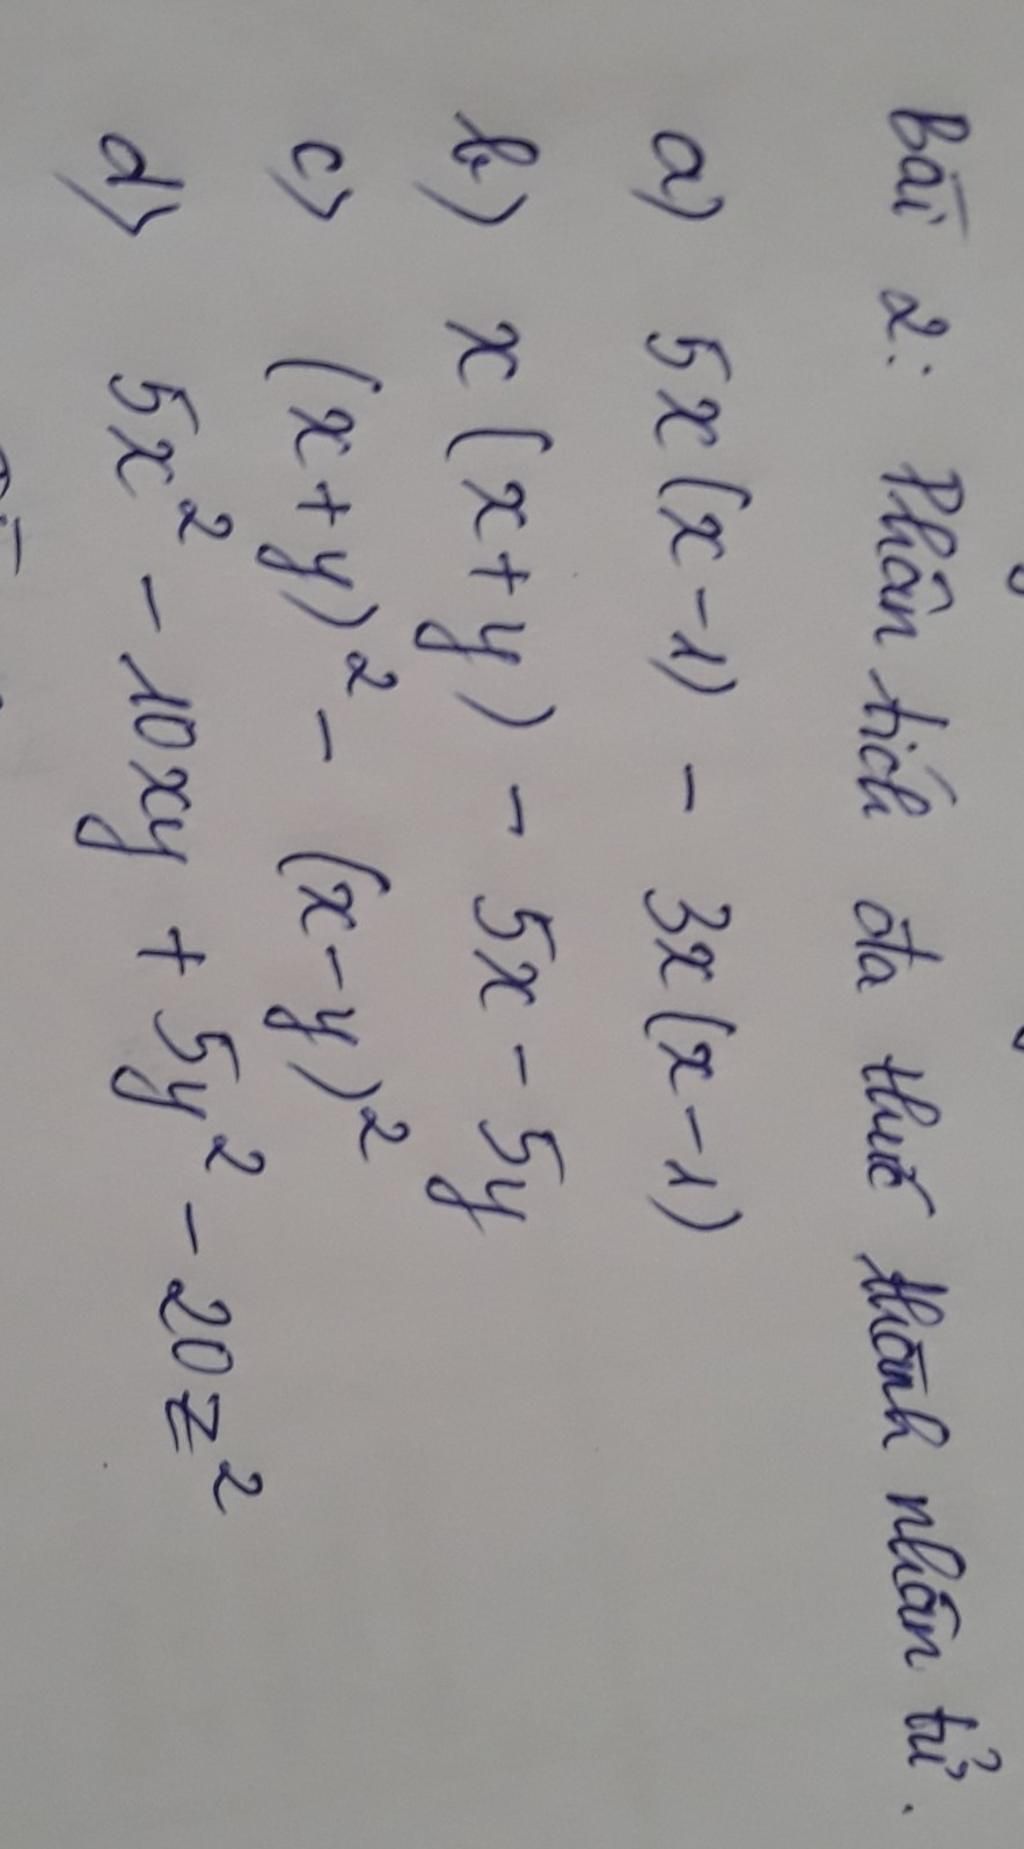 Bài 2: Phân tích đa thức thành nhân tử.
a) 5x(x-1) - 3x(x-1)
b) x(x+y) - 5x - 5y
c) (x+y)² - (x-y)²
d) 5x² - 10xy + 5y² - 20z²